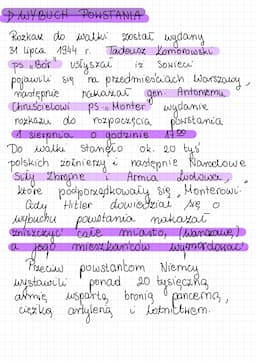 ▷ WYBUCH POWSTANIA
Rozkaz do walki został wydany
31 lipca 1944 r. Tadeusz Komorowski
ps. „Bór” usłyszał iż sowieci
pojawili się na przedmieściach Warszawy,
następnie nakazał gen. Antoniemu
Chruścielowi ps. „Monter” wydanie
rozkazu do rozpoczęcia powstania
1 sierpnia o godzinie 17⁰⁰
Do walki stanęło ok. 20 tyś
polskich żołnierzy i następnie Narodowe
Siły Zbrojne i Armia Ludowa,
które podporządkowały się „Monterowi”.
Gdy Hitler dowiedział się o
wybuchu powstania nakazał
zniszczyć całe miasto, (Warszawę)
a jego mieszkańców wymordować.
Przeciw powstańcom Niemcy
wystawili ponad 20 tysięczną
armię wspartą bronią pancerną,
ciężką artylerią i lotnictwem.